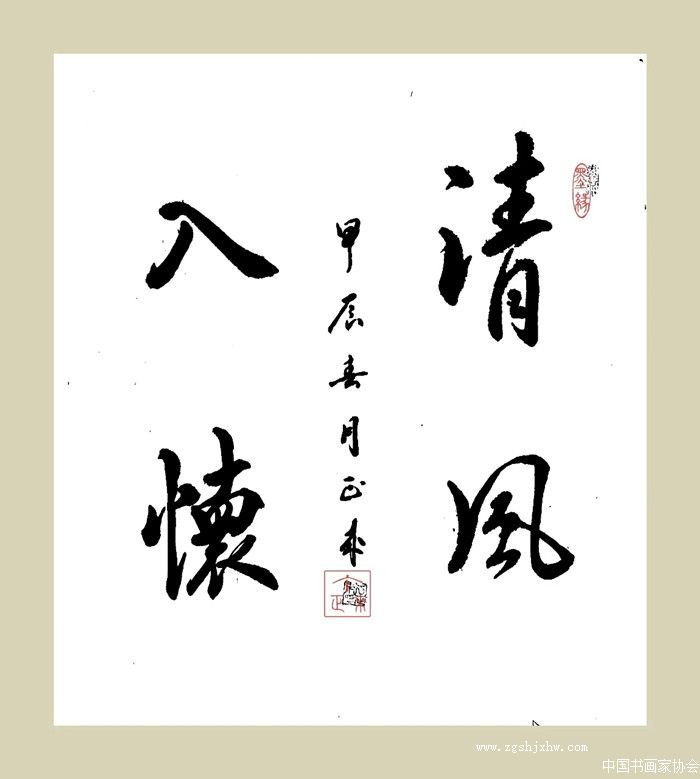 清風
入懷
甲辰春月正来
墨緣
www.zgshjxhw.com
中国书画家协会